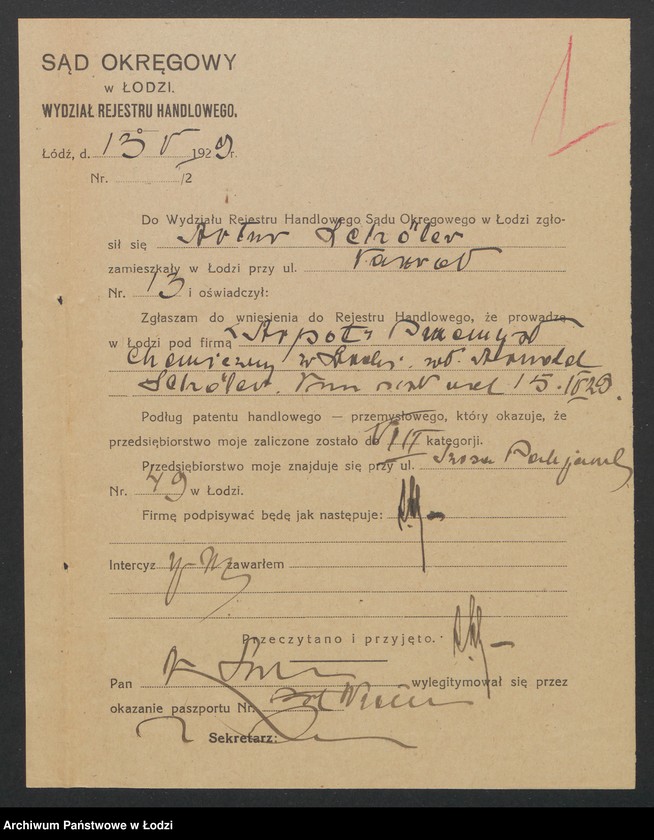 SĄD OKRĘGOWY
w ŁODZI.
WYDZIAŁ REJESTRU HANDLOWEGO.
Łódź, d. 13 V 1929 r.
Nr. /2
Do Wydziału Rejestru Handlowego Sądu Okręgowego w Łodzi zgło-
sił się Artur Schöler
zamieszkały w Łodzi przy ul. Nawrot
Nr. 13 i oświadczył:
Zgłaszam do wniesienia do Rejestru Handlowego, że prowadzę
w Łodzi pod firmą Przemysł
Chemiczny w Łodzi, wł.
Schöler. 15.
Podług patentu handlowego — przemysłowego, który okazuje, że
przedsiębiorstwo moje zaliczone zostało do VIII kategorji.
Przedsiębiorstwo moje znajduje się przy ul. Szosa Pabjanic
Nr. 49 w Łodzi.
Firmę podpisywać będę jak następuje:
Intercyz zawarłem
Przeczytano i przyjęto.
Pan wylegitymował się przez
okazanie paszportu Nr.
Sekretarz:
Archiwum Państwowe w Łodzi